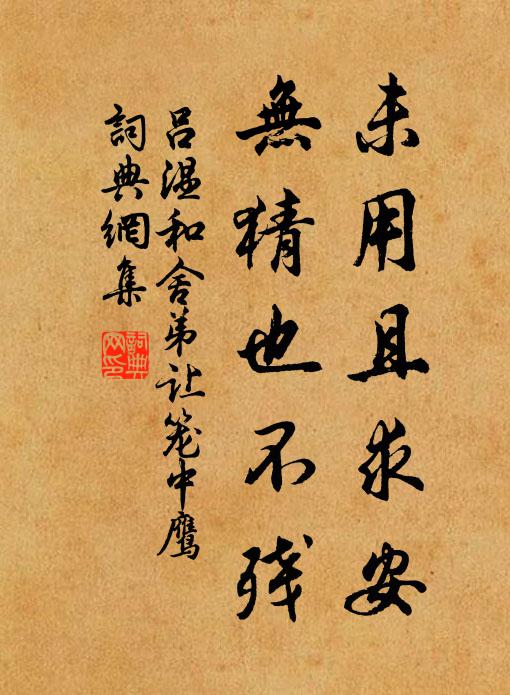 未用且求安
無猜也不残
吕温和舍弟让笼中鹰
詞典網集
詞典网印